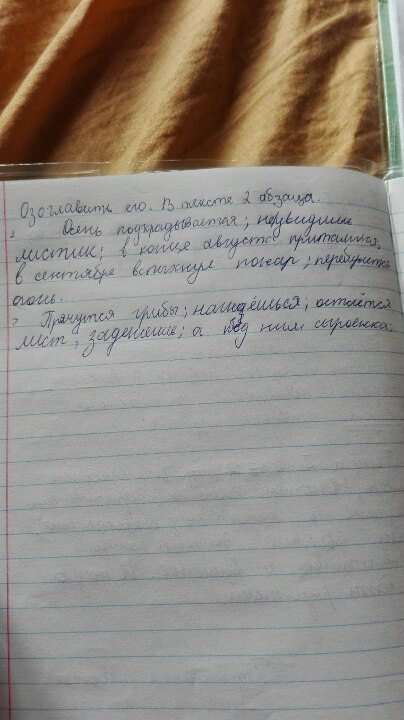 Озоглавить его. В тексте 2 абзаца.
Осень подкрадывается; неувидишь
листик; в конце августа притаился,
в сентябре вспыхнул пожар; перебирается
огонь.
Прячутся грибы; нагнёшься; остаётся
лист; заденешь; а под ним сыроежка;